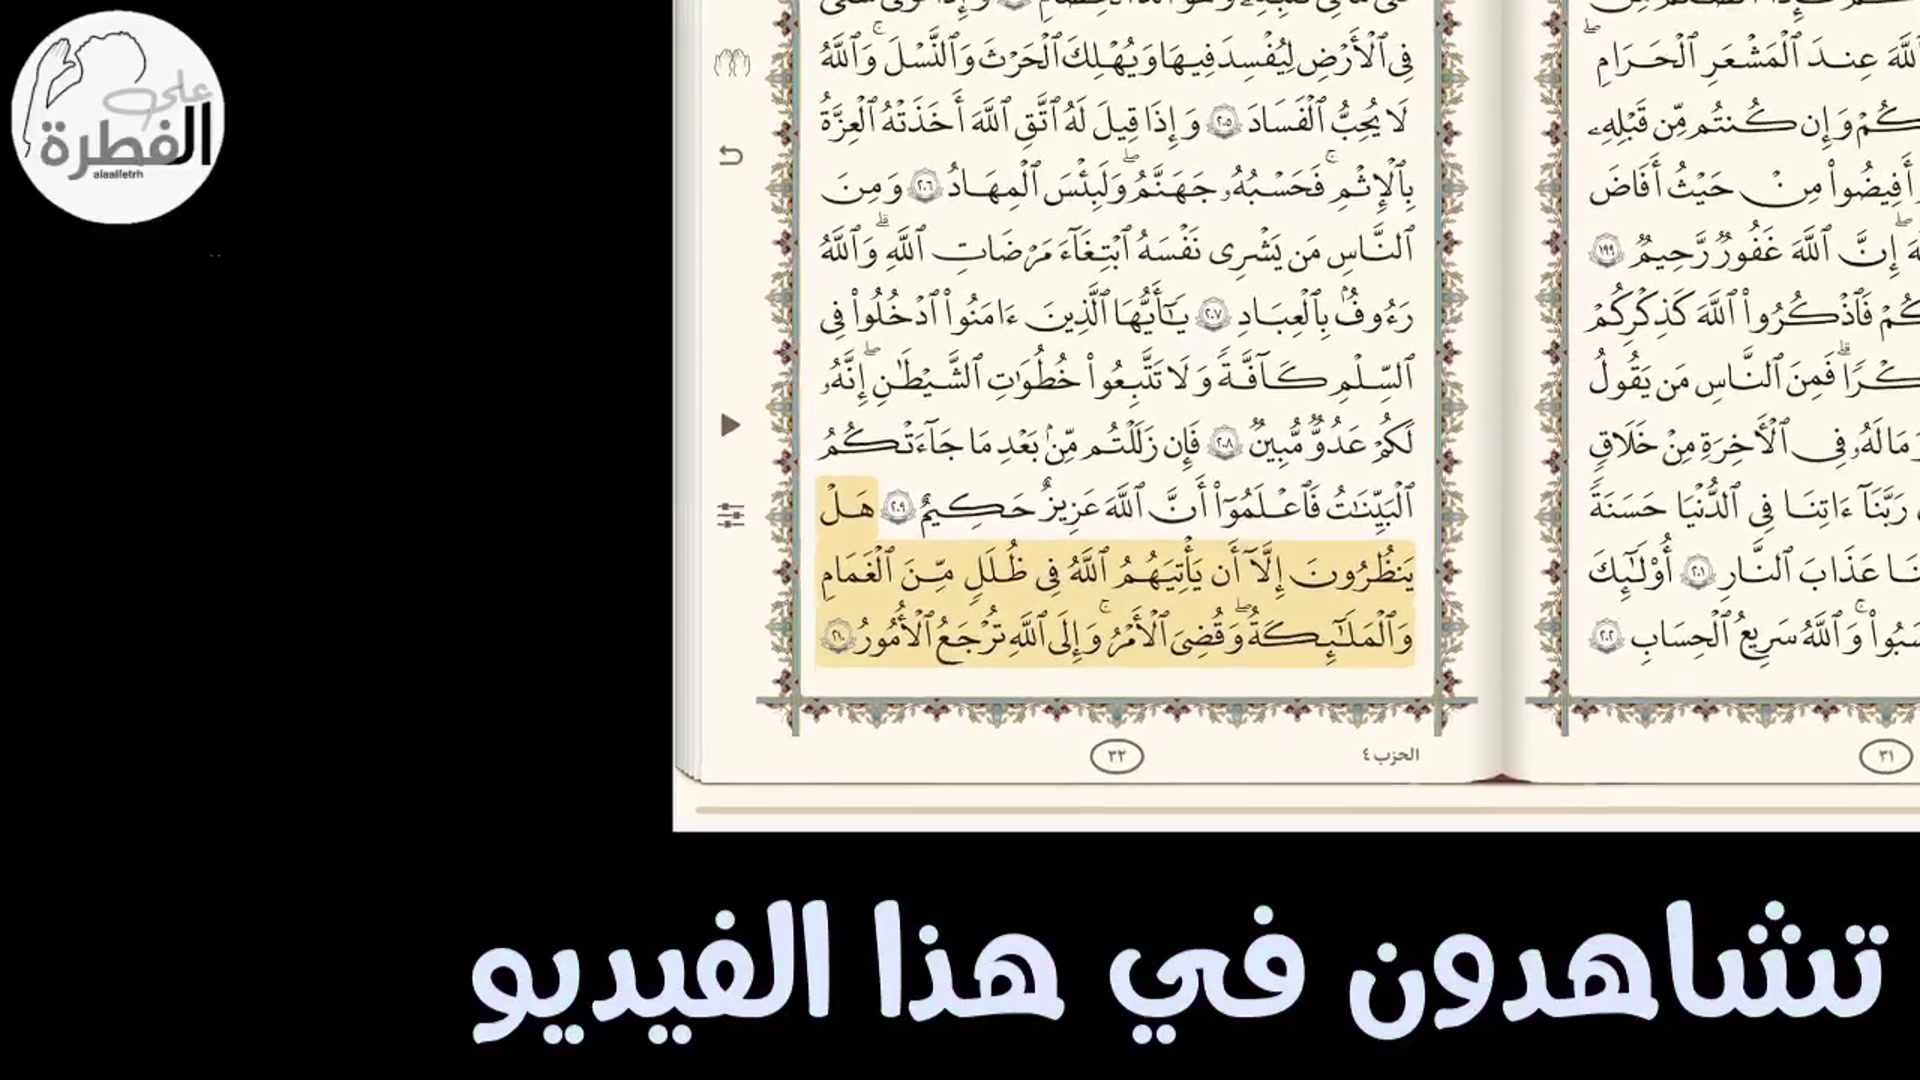 على
الفطرة
alaalfetrh
فِي ٱلْأَرْضِ لِيُفْسِدَ فِيهَا وَيُهْلِكَ ٱلْحَرْثَ وَٱلنَّسْلَ ۚ وَٱللَّهُ
لَا يُحِبُّ ٱلْفَسَادَ ٢٠٥ وَإِذَا قِيلَ لَهُ ٱتَّقِ ٱللَّهَ أَخَذَتْهُ ٱلْعِزَّةُ
بِٱلْإِثْمِ ۚ فَحَسْبُهُۥ جَهَنَّمُ ۖ وَلَبِئْسَ ٱلْمِهَادُ ٢٠٦ وَمِنَ
ٱلنَّاسِ مَن يَشْرِى نَفْسَهُ ٱبْتِغَآءَ مَرْضَاتِ ٱللَّهِ ۗ وَٱللَّهُ
رَءُوفٌۢ بِٱلْعِبَادِ ٢٠٧ يَـٰٓأَيُّهَا ٱلَّذِينَ ءَامَنُوا۟ ٱدْخُلُوا۟ فِى
ٱلسِّلْمِ كَآفَّةً وَلَا تَتَّبِعُوا۟ خُطُوَٰتِ ٱلشَّيْطَـٰنِ ۖ إِنَّهُۥ
لَكُمْ عَدُوٌّ مُّبِينٌ ٢٠٨ فَإِن زَلَلْتُم مِّنۢ بَعْدِ مَا جَآءَتْكُمُ
ٱلْبَيِّنَـٰتُ فَٱعْلَمُوٓا۟ أَنَّ ٱللَّهَ عَزِيزٌ حَكِيمٌ ٢٠٩ هَلْ
يَنظُرُونَ إِلَّآ أَن يَأْتِيَهُمُ ٱللَّهُ فِى ظُلَلٍ مِّنَ ٱلْغَمَامِ
وَٱلْمَلَـٰٓئِكَةُ وَقُضِىَ ٱلْأَمْرُ ۚ وَإِلَى ٱللَّهِ تُرْجَعُ ٱلْأُمُورُ ٢١٠
الحزب ٤
٣٢
ٱللَّهَ عِندَ ٱلْمَشْعَرِ ٱلْحَرَامِ ۖ
كُمْ وَإِن كُنتُم مِّن قَبْلِهِۦ
أَفِيضُوا۟ مِنْ حَيْثُ أَفَاضَ
إِنَّ ٱللَّهَ غَفُورٌ رَّحِيمٌ ١٩٩
كُمْ فَٱذْكُرُوا۟ ٱللَّهَ كَذِكْرِكُمْ
كْرًا ۗ فَمِنَ ٱلنَّاسِ مَن يَقُولُ
مَا لَهُۥ فِى ٱلْـَٔاخِرَةِ مِنْ خَلَـٰقٍ
رَبَّنَآ ءَاتِنَا فِى ٱلدُّنْيَا حَسَنَةً
نَا عَذَابَ ٱلنَّارِ ٢٠١ أُو۟لَـٰٓئِكَ
سَبُوا۟ ۚ وَٱللَّهُ سَرِيعُ ٱلْحِسَابِ ٢٠٢
٣١
تشاهدون في هذا الفيديو